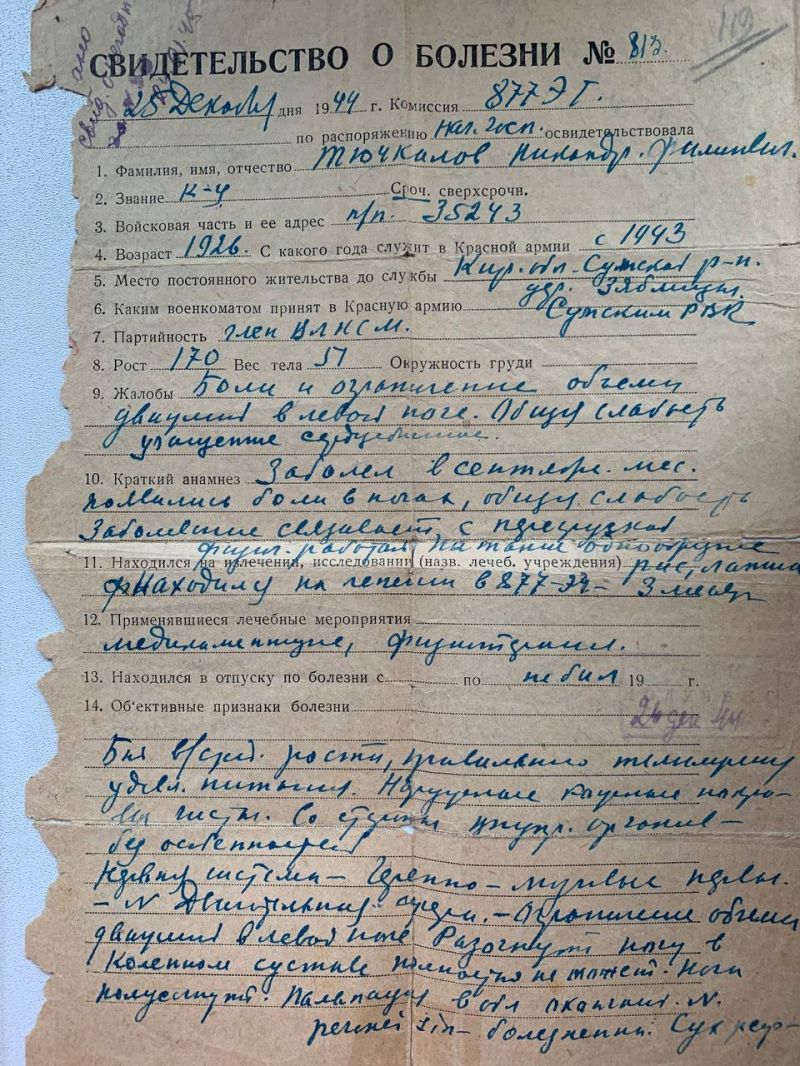 119
СВИДЕТЕЛЬСТВО О БОЛЕЗНИ № 813.
28 Декабря дня 1944 г. Комиссия 877 Э Г.
по распоряжению Нач. Госп. освидетельствовала
1. Фамилия, имя, отчество
2. Звание к-ц Сроч. сверхсрочн.
3. Войсковая часть и ее адрес п/п. 35243
4. Возраст 1926. С какого года служит в Красной армии с 1943
5. Место постоянного жительства до службы Кир. обл. Сунской р-н.
дер. Зяблицы.
6. Каким военкоматом принят в Красную армию Сунским РВК
7. Партийность член ВЛКСМ.
8. Рост 170 Вес тела 51 Окружность груди
9. Жалобы Боли и ограничение объема
движений в левой ноге. Общая слабость
учащение сердцебиение.
10. Краткий анамнез Заболел в сентябре. мес.
появились боли в ногах, общая слабость
Заболевание связывает с перегрузкой
физич. работой Питание однообразное
11. Находился на излечении, исследовании (назв. лечеб. учреждения) рис, лапша
Находился на лечении в 877-ЭГ- 3 месяца
12. Применявшиеся лечебные мероприятия
медикаментозные, физиотерапия.
13. Находился в отпуску по болезни с по не был 19 г.
14. Об'ективные признаки болезни
26 дек 44
роста, правильного телосложения
удовл. питания. Наружные кожные покро-
вы чисты. Со стороны внутр. органов -
без особенностей
Нервная система - Черепно-мозговые нервы.
- N Двигательная сфера. - Ограничение объема
движений в левой ноге Разогнуть ногу в
коленном суставе полностью не может. Нога
полусогнута. Пальпация в обл N.
болезненна. Сух